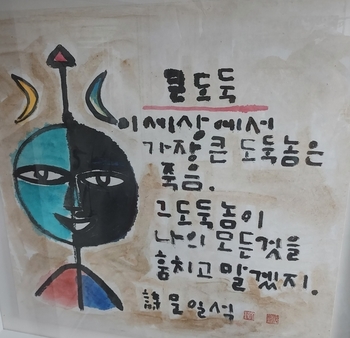 큰도둑
이세상에서
가장큰 도둑놈은
죽음.
그도둑놈이
나의 모든것을
훔치고 말겠지.
詩 문일석